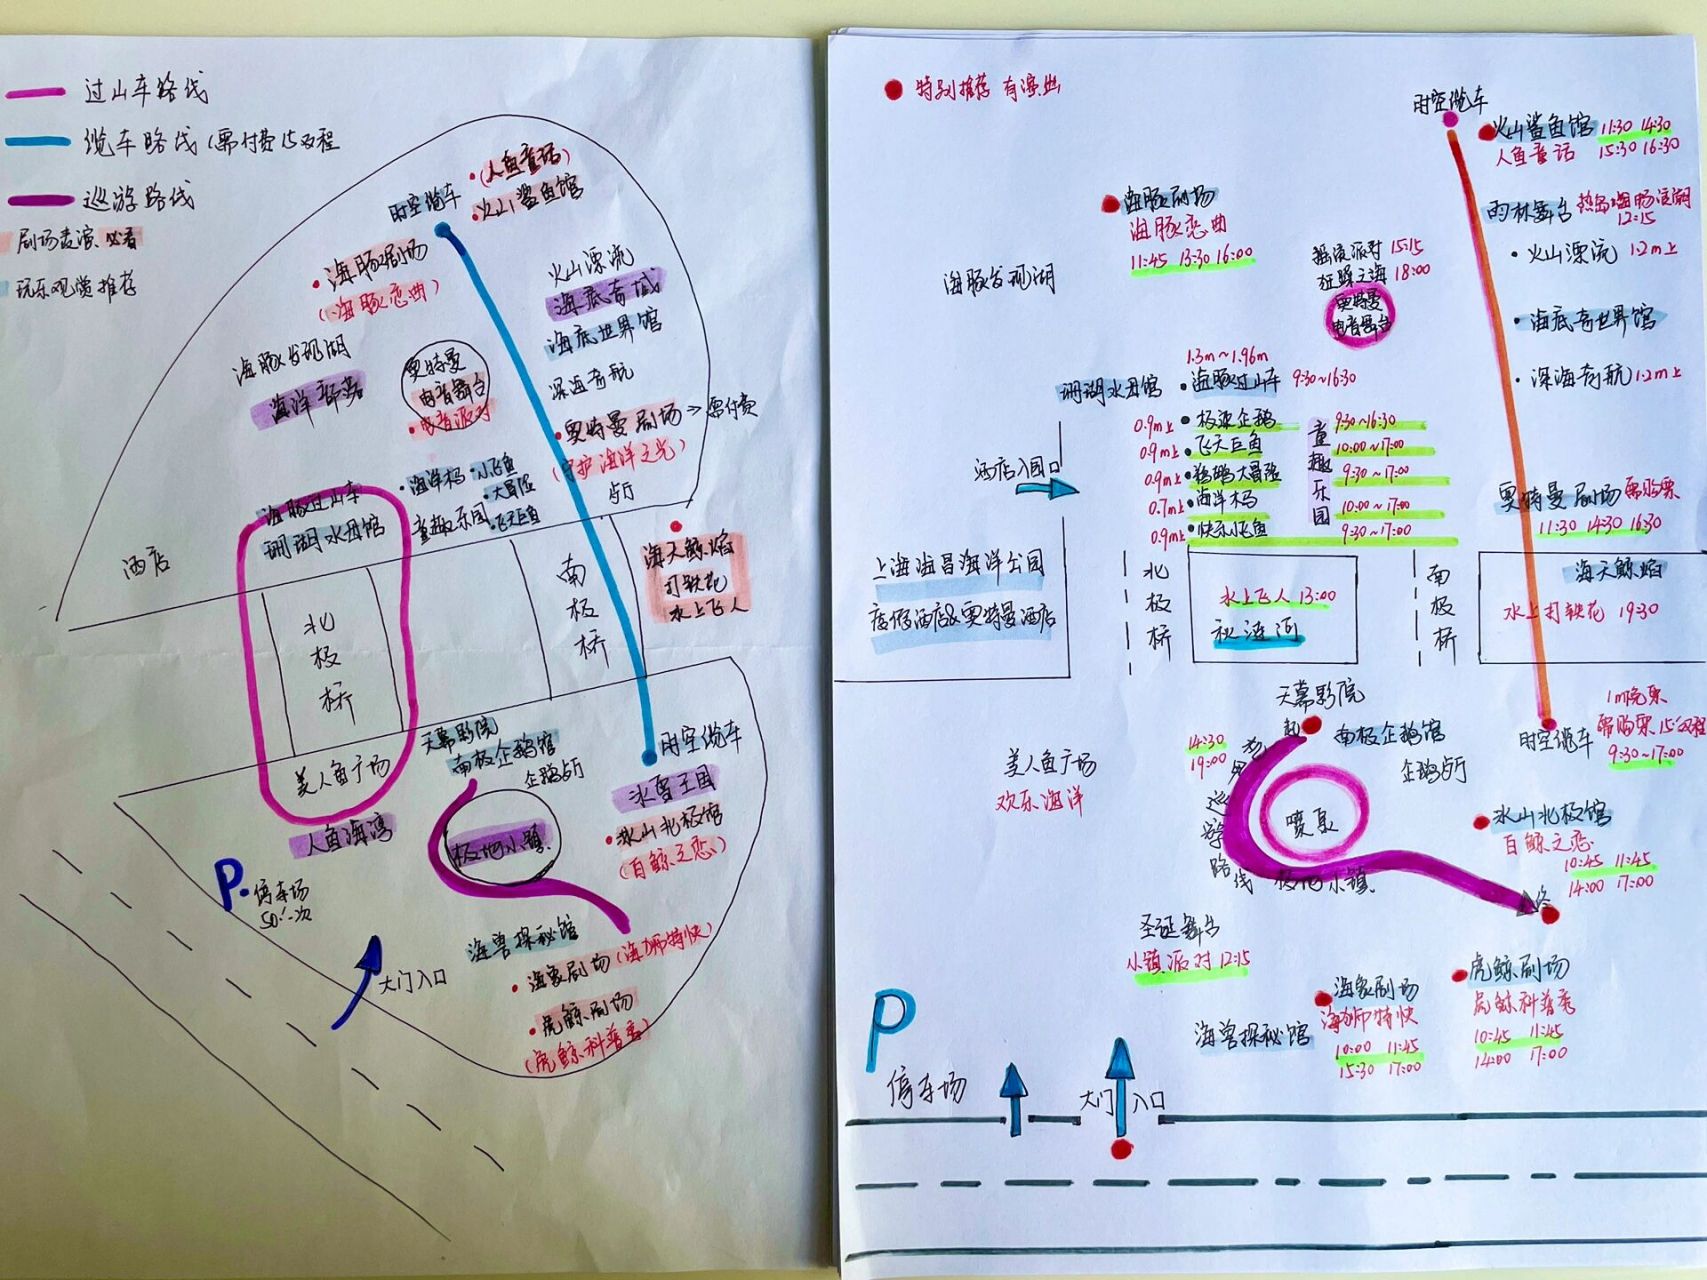 过山车路线
缆车路线(需付费15双程
巡游路线
剧场表演 必看
玩乐观赏推荐
时空缆车
(人鱼童话)
火山鲨鱼馆
海豚剧场
(海豚恋曲)
火山漂流
海底奇域
海底世界馆
深海奇航
海豚发现湖
海洋部落
奥特曼
电音舞台
电音派对
奥特曼剧场→需付费
(守护海洋之光)
海豚过山车
珊瑚水母馆
海洋杩
小飞鱼
大冒险
童趣乐园
飞天巨鱼
酒店
北极桥
南极桥
海天鲸焰
打铁花
水上飞人
美人鱼广场
人鱼海湾
天幕影院
南极企鹅馆
企鹅餐厅
时空缆车
冰雪王国
冰山北极馆
(白鲸之恋)
极地小镇
P.停车场
50/-次
大门入口
海兽探秘馆
海象剧场(海狮特快)
虎鲸剧场
(虎鲸科普秀)
特别推荐 有演出
时空缆车
火山鲨鱼馆 11:30 14:30
人鱼童话 15:30 16:30
海豚剧场
海豚恋曲
11:45 13:30 16:00
雨林舞台
12:15
火山漂流 1.2m上
海豚发现湖
摇滚派对 15:15
狂躁之海 18:00
奥特曼
电音舞台
海底奇世界馆
深海奇航 1.2m上
珊瑚水母馆
1.3m~1.96m
海豚过山车 9:30~16:30
0.9m上 极速企鹅 9:30~16:30
0.9m上 飞天巨鱼 10:00~17:00
0.9m上 大冒险 9:30~17:00
0.7m上 海洋杩 10:00~17:00
0.9m上 快乐小飞鱼 9:30~17:00
童趣乐园
酒店入园口
奥特曼剧场 需购票
11:30 14:30 16:30
上海海昌海洋公园
度假酒店&奥特曼酒店
北极桥
水上飞人 13:00
秋涟河
南极桥
海天鲸焰
水上打铁花 19:30
天幕影院
起
南极企鹅馆
企鹅餐厅
14:30
19:00
花车巡游路线
喷泉
极地小镇
终
美人鱼广场
欢乐海洋
时空缆车
1m免票
需购票 15/双程
9:30~17:00
冰山北极馆
白鲸之恋
10:45 11:45
14:00 17:00
圣诞舞台
小镇派对 12:15
海兽探秘馆
海象剧场
海狮特快
10:00 11:45
15:30 17:00
虎鲸剧场
虎鲸科普秀
10:45 11:45
14:00 17:00
P
停车场
大门入口